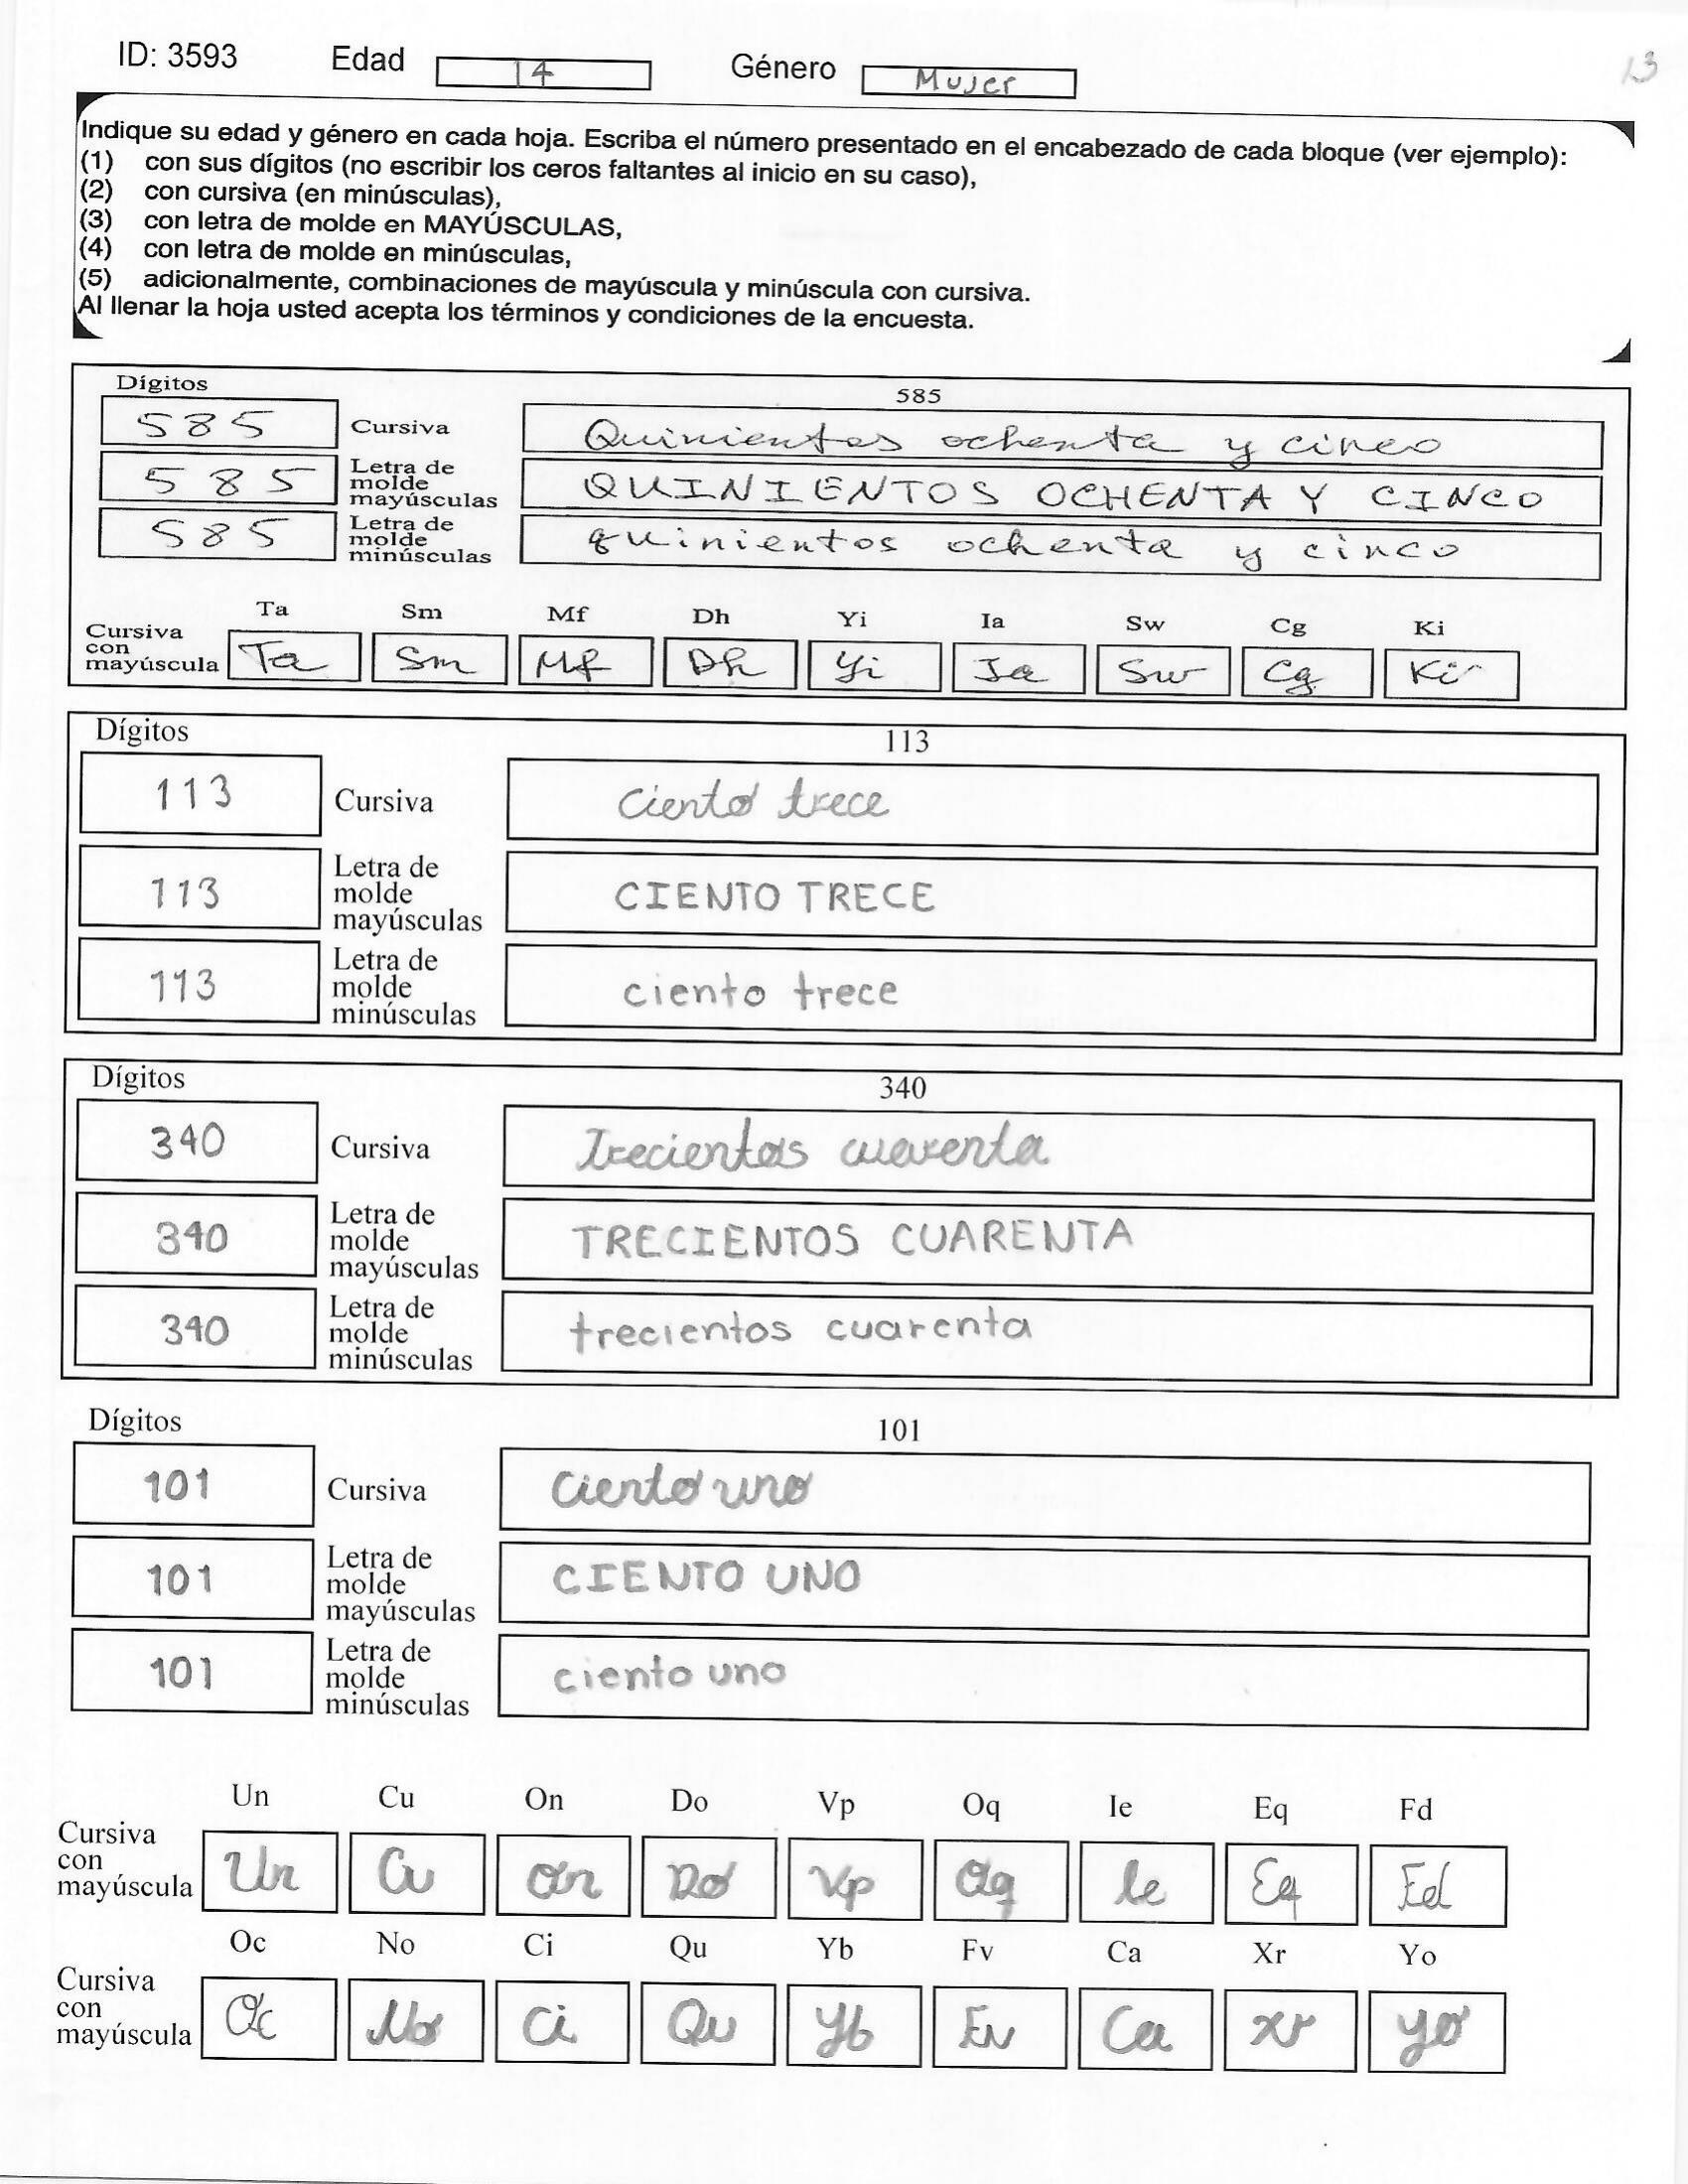 ID: 3593 Edad 14 Género Mujer 13
Indique su edad y género en cada hoja. Escriba el número presentado en el encabezado de cada bloque (ver ejemplo):
(1) con sus dígitos (no escribir los ceros faltantes al inicio en su caso),
(2) con cursiva (en minúsculas),
(3) con letra de molde en MAYÚSCULAS,
(4) con letra de molde en minúsculas,
(5) adicionalmente, combinaciones de mayúscula y minúscula con cursiva.
Al llenar la hoja usted acepta los términos y condiciones de la encuesta.
Dígitos 585
585 Cursiva Quinientos ochenta y cinco
585 Letra de molde mayúsculas QUINIENTOS OCHENTA Y CINCO
585 Letra de molde minúsculas quinientos ochenta y cinco
Ta Sm Mf Dh Yi Ia Sw Cg Ki
Cursiva con mayúscula Ta Sm Mf Dh Yi Ia Sw Cg Ki
Dígitos 113
113 Cursiva Ciento trece
113 Letra de molde mayúsculas CIENTO TRECE
113 Letra de molde minúsculas ciento trece
Dígitos 340
340 Cursiva Trecientos cuarenta
340 Letra de molde mayúsculas TRECIENTOS CUARENTA
340 Letra de molde minúsculas trecientos cuarenta
Dígitos 101
101 Cursiva Ciento uno
101 Letra de molde mayúsculas CIENTO UNO
101 Letra de molde minúsculas ciento uno
Un Cu On Do Vp Oq Ie Eq Fd
Cursiva con mayúscula Un Cu On Do Vp Oq Ie Eq Fd
Oc No Ci Qu Yb Fv Ca Xr Yo
Cursiva con mayúscula Oc No Ci Qu Yb Fv Ca Xr Yo